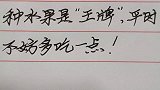 种水果是“王牌”，平时
不妨多吃一点！